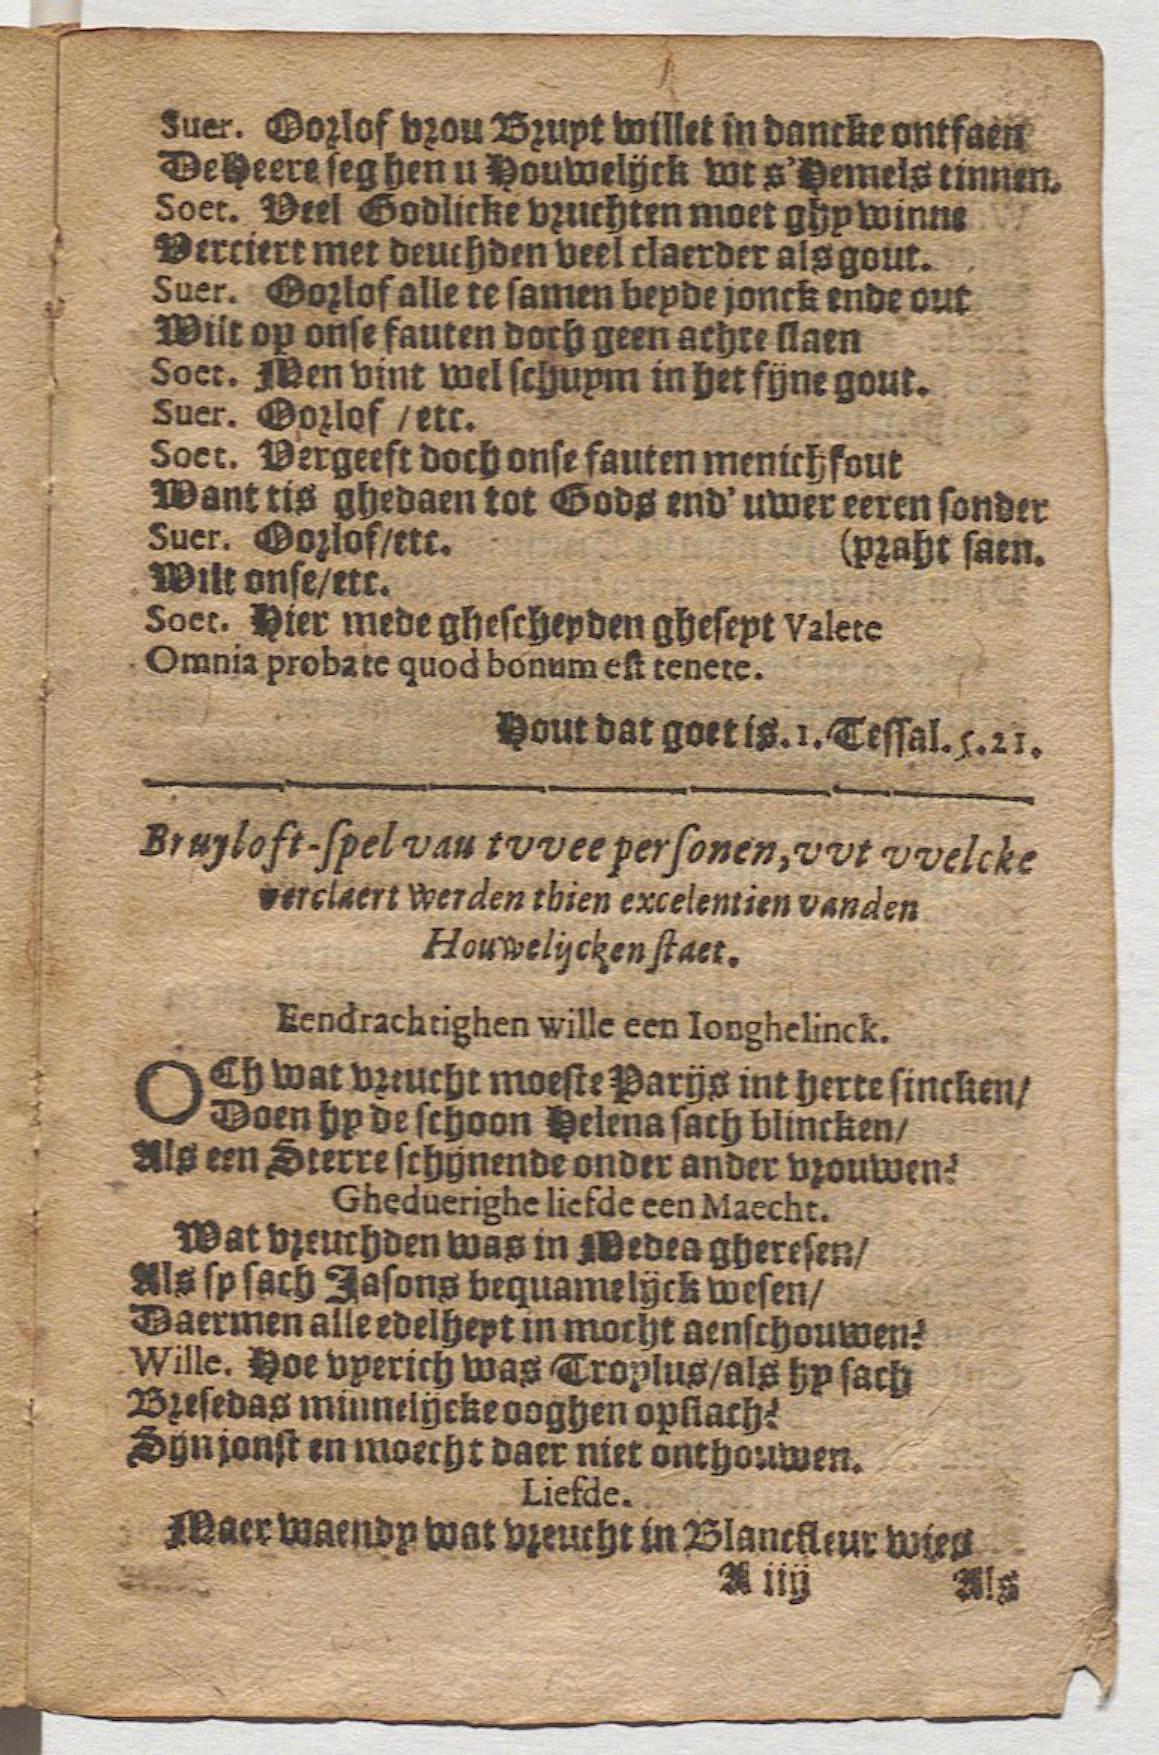 Suer. Oorlof vrou Bruyt willet in dancke ontfaen
De Heere seghen u Houwelijck wt s'Hemels tinnen.
Soet. Veel Godlicke vruchten moet ghy winne
Verciert met deuchden veel claerder als gout.
Suer. Oorlof alle te samen beyde jonck ende out
Wilt op onse fauten doch geen achte slaen
Soet. Men vint wel schuym in het fijne gout.
Suer. Oorlof / etc.
Soet. Vergeeft doch onse fauten menichfout
Want tis ghedaen tot Gods end' uwer eeren sonder
Suer. Oorlof/etc. (praht saen.
Wilt onse/etc.
Soet. Hier mede ghescheyden gheseyt Valete
Omnia probate quod bonum est tenete.
Hout dat goet is. 1. Tessal. 5. 21.
Bruyloft-spel vau tvvee personen, vvt vvelcke
verclaert werden thien excelentien vanden
Houwelijcken staet.
Eendrachtighen wille een Ionghelinck.
OCh wat vreucht moeste Parijs int herte sincken/
Doen hy de schoon Helena sach blincken/
Als een Sterre schijnende onder ander vrouwen?
Gheduerighe liefde een Maecht.
Wat vreuchden was in Medea gheresen/
Als sy sach Jasons bequamelijck wesen/
Daermen alle edelheyt in mocht aenschouwen?
Wille. Hoe vyerich was Troylus/als hy sach
Bresedas minnelijcke ooghen opslach?
Sijn jonst en moecht daer niet onthouwen.
Liefde.
Maer waendy wat vreucht in Blancfleur wies
A iiij Als